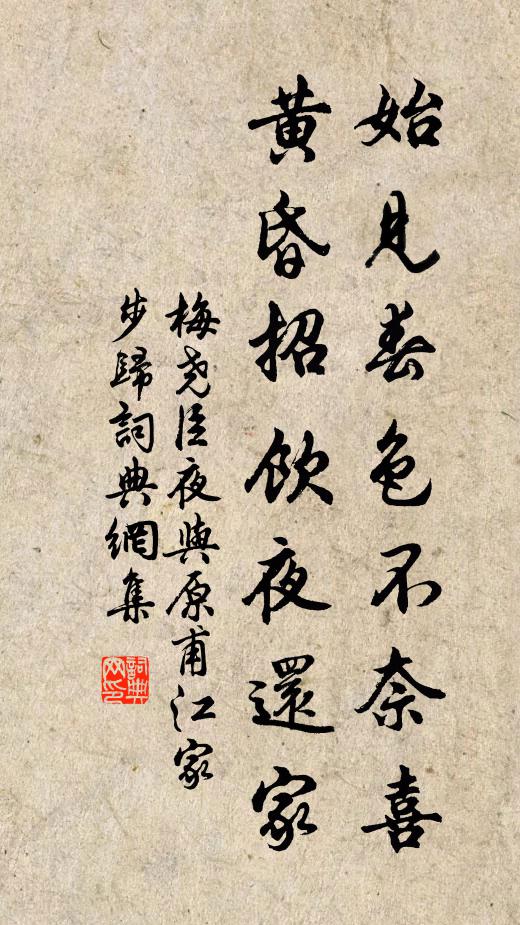 始見春色不奈喜
黃昏招飲夜還家
梅堯臣夜與原甫江家
步歸詞典網集
詞典網印